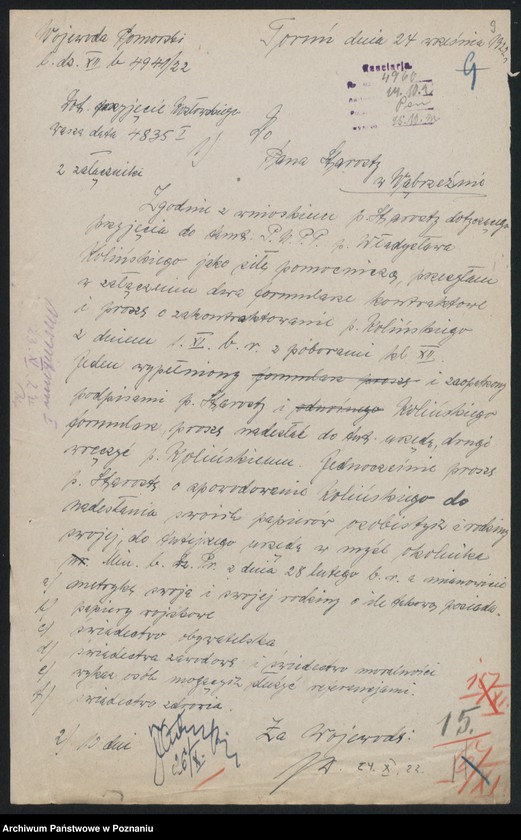 Wojewoda Pomorski
l. dz. XII b 4941/22
Toruń dnia 24 września 1922
9
Kancelarja
4960
Dot. przyjęcie
wasza data 4835 I
1/ Do
Pana Starosty
w Wąbrzeźnie
2 załączniki
Zgodnie z wnioskiem p. Starosty dotyczącego
przyjęcia do tamt. P.U.P.P. p. Władysława
Kolińskiego jako siłę pomocniczą, przesyłam
w załączeniu dwa formularze kontraktowe
i proszę o zakontraktowanie p. Kolińskiego
z dniem 1. XI. b. r. z poborami kl XII.
Jeden wypełniony formularz proszę i zaopatrzony
podpisami p. Starosty i Kolińskiego
formularz, proszę nadesłać do tut. urzędu, drugi
wręczyć p. Kolińskiemu. Jednocześnie proszę
p. Starostę o spowodowanie Kolińskiego do
nadesłania swoich papierów osobistych i rodziny
swojej, do tutejszego urzędu w myśl okólnika
Min. b. Dz. Pr. z dnia 28 lutego b. r. a mianowicie
a/ metrykę swoją i swojej rodziny o ile takową posiada.
b/ papiery wojskowe
c/ świadectwo obywatelska
d/ świadectwa zawodowe i świadectwo moralności
e/ wykaz osób mogących służyć referencjami.
f/ świadectwo zdrowia.
2/ 10 dni
26/X.
Za Wojewodę:
24. X. 22.
15.
Archiwum Państwowe w Poznaniu